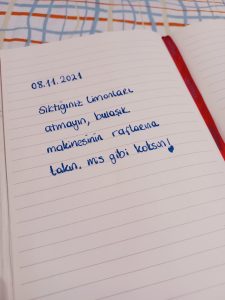 08.11.2021
Sıktığınız limonları
atmayın, bulaşık
makinesinin raflarına
takın, mis gibi koksun!